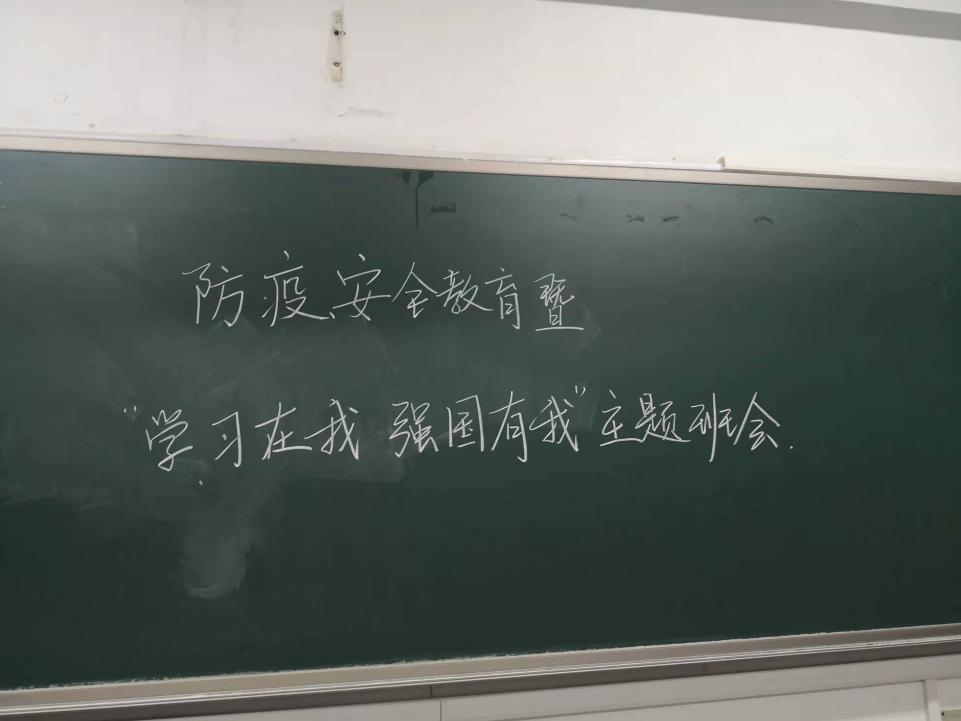 防疫安全教育暨
“学习在我 强国有我”主题班会.